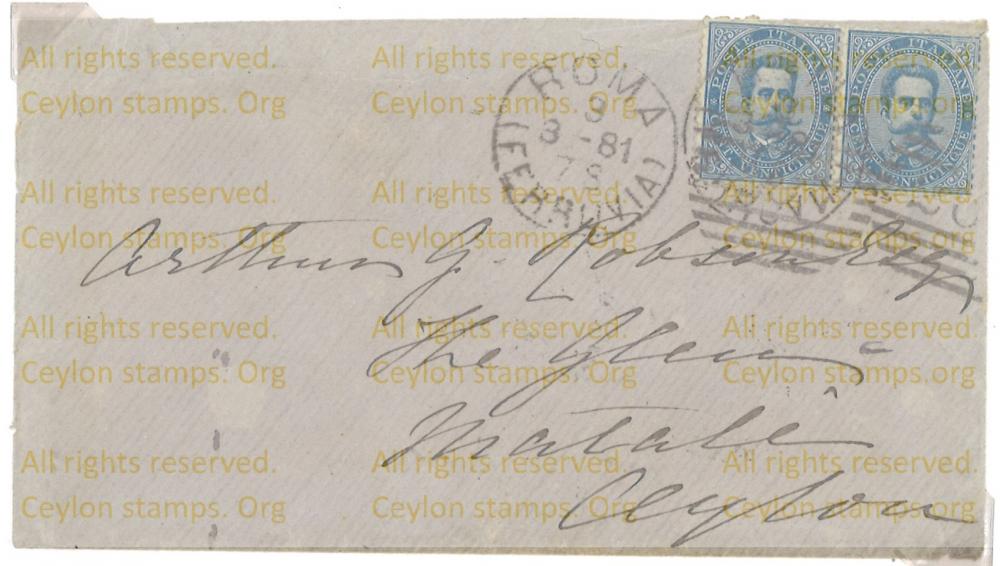 All rights reserved. All rights reserved. All rights reserved.
Ceylon stamps. Org Ceylon stamps. Org Ceylon stamps. Org
POSTE ITALIANE
CENT. VENTICINQUE
POSTE ITALIANE
CENT. VENTICINQUE
ROMA
9
3 - 81
7 S
(FERROVIA)
All rights reserved. All rights reserved. All rights reserved.
Ceylon stamps. Org Ceylon stamps. Org Ceylon stamps. Org
Arthur G. Robson Esq
The Glen
Matale
Ceylon
All rights reserved. All rights reserved. All rights reserved.
Ceylon stamps. Org Ceylon stamps. Org Ceylon stamps. Org
All rights reserved. All rights reserved. All rights reserved.
Ceylon stamps. Org Ceylon stamps. Org Ceylon stamps. Org